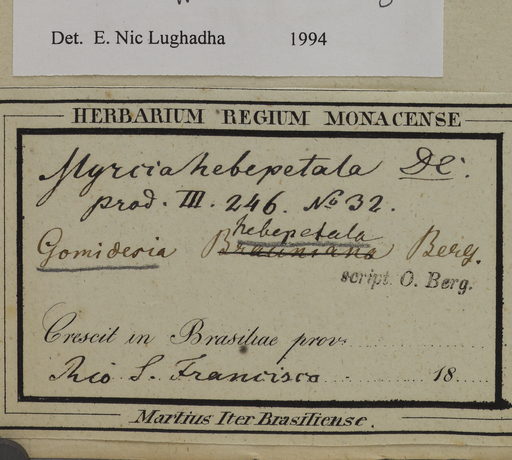 Det. E. Nic Lughadha 1994
HERBARIUM REGIUM MONACENSE
Myrcia hebepetala DC.
prod. III. 246. No 32.
hebepetala
Gomidesia Brauniana Berg.
script. O. Berg.
Crescit in Brasiliae prov.
Rio S. Francisco 18
Martius Iter Brasiliense.